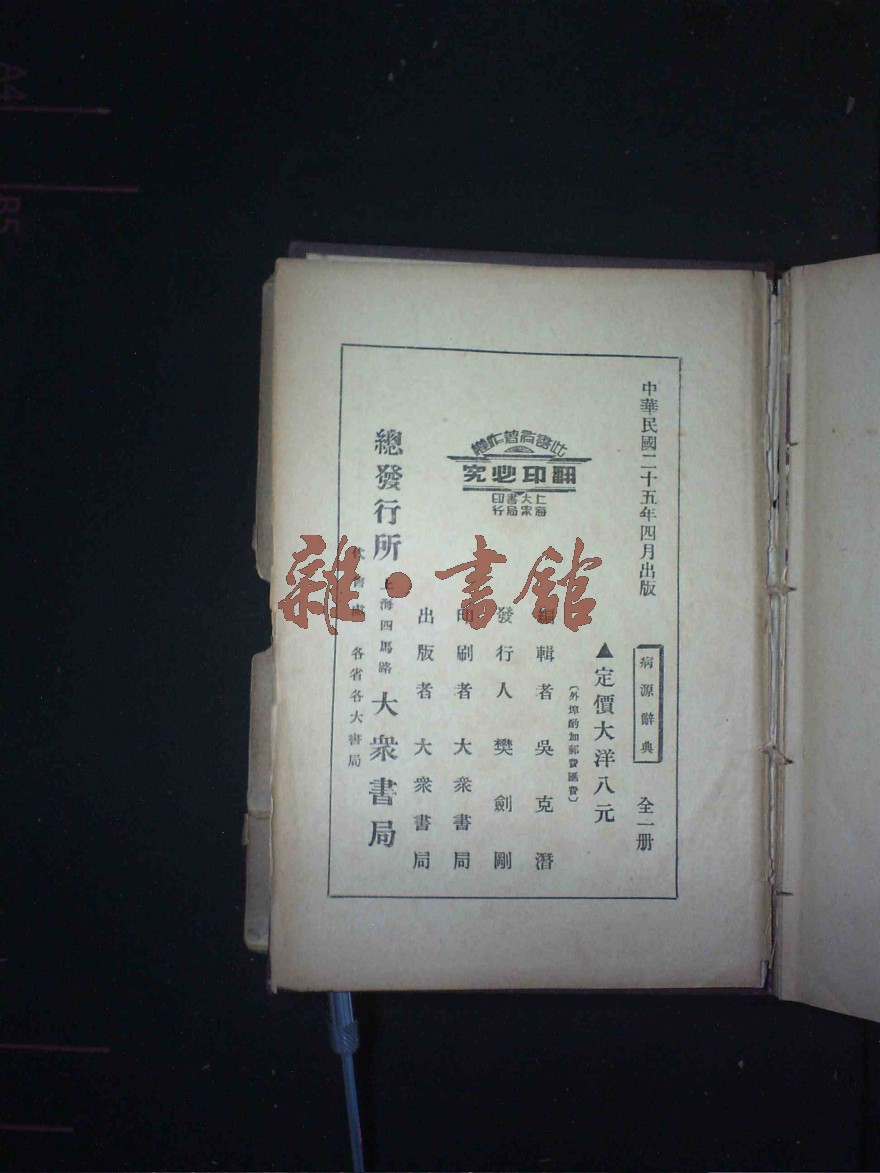 中華民國二十五年四月出版
病源辭典
全一册
▲定價大洋八元
〔外埠酌加郵費匯費〕
編輯者 吳克潛
發行人 樊劍剛
印刷者 大衆書局
出版者 大衆書局
此書有著作權
翻印必究
上海
大衆
書局
印行
總發行所 上海四馬路 大衆書局
各省各大書局
雜·書館
A4
B5